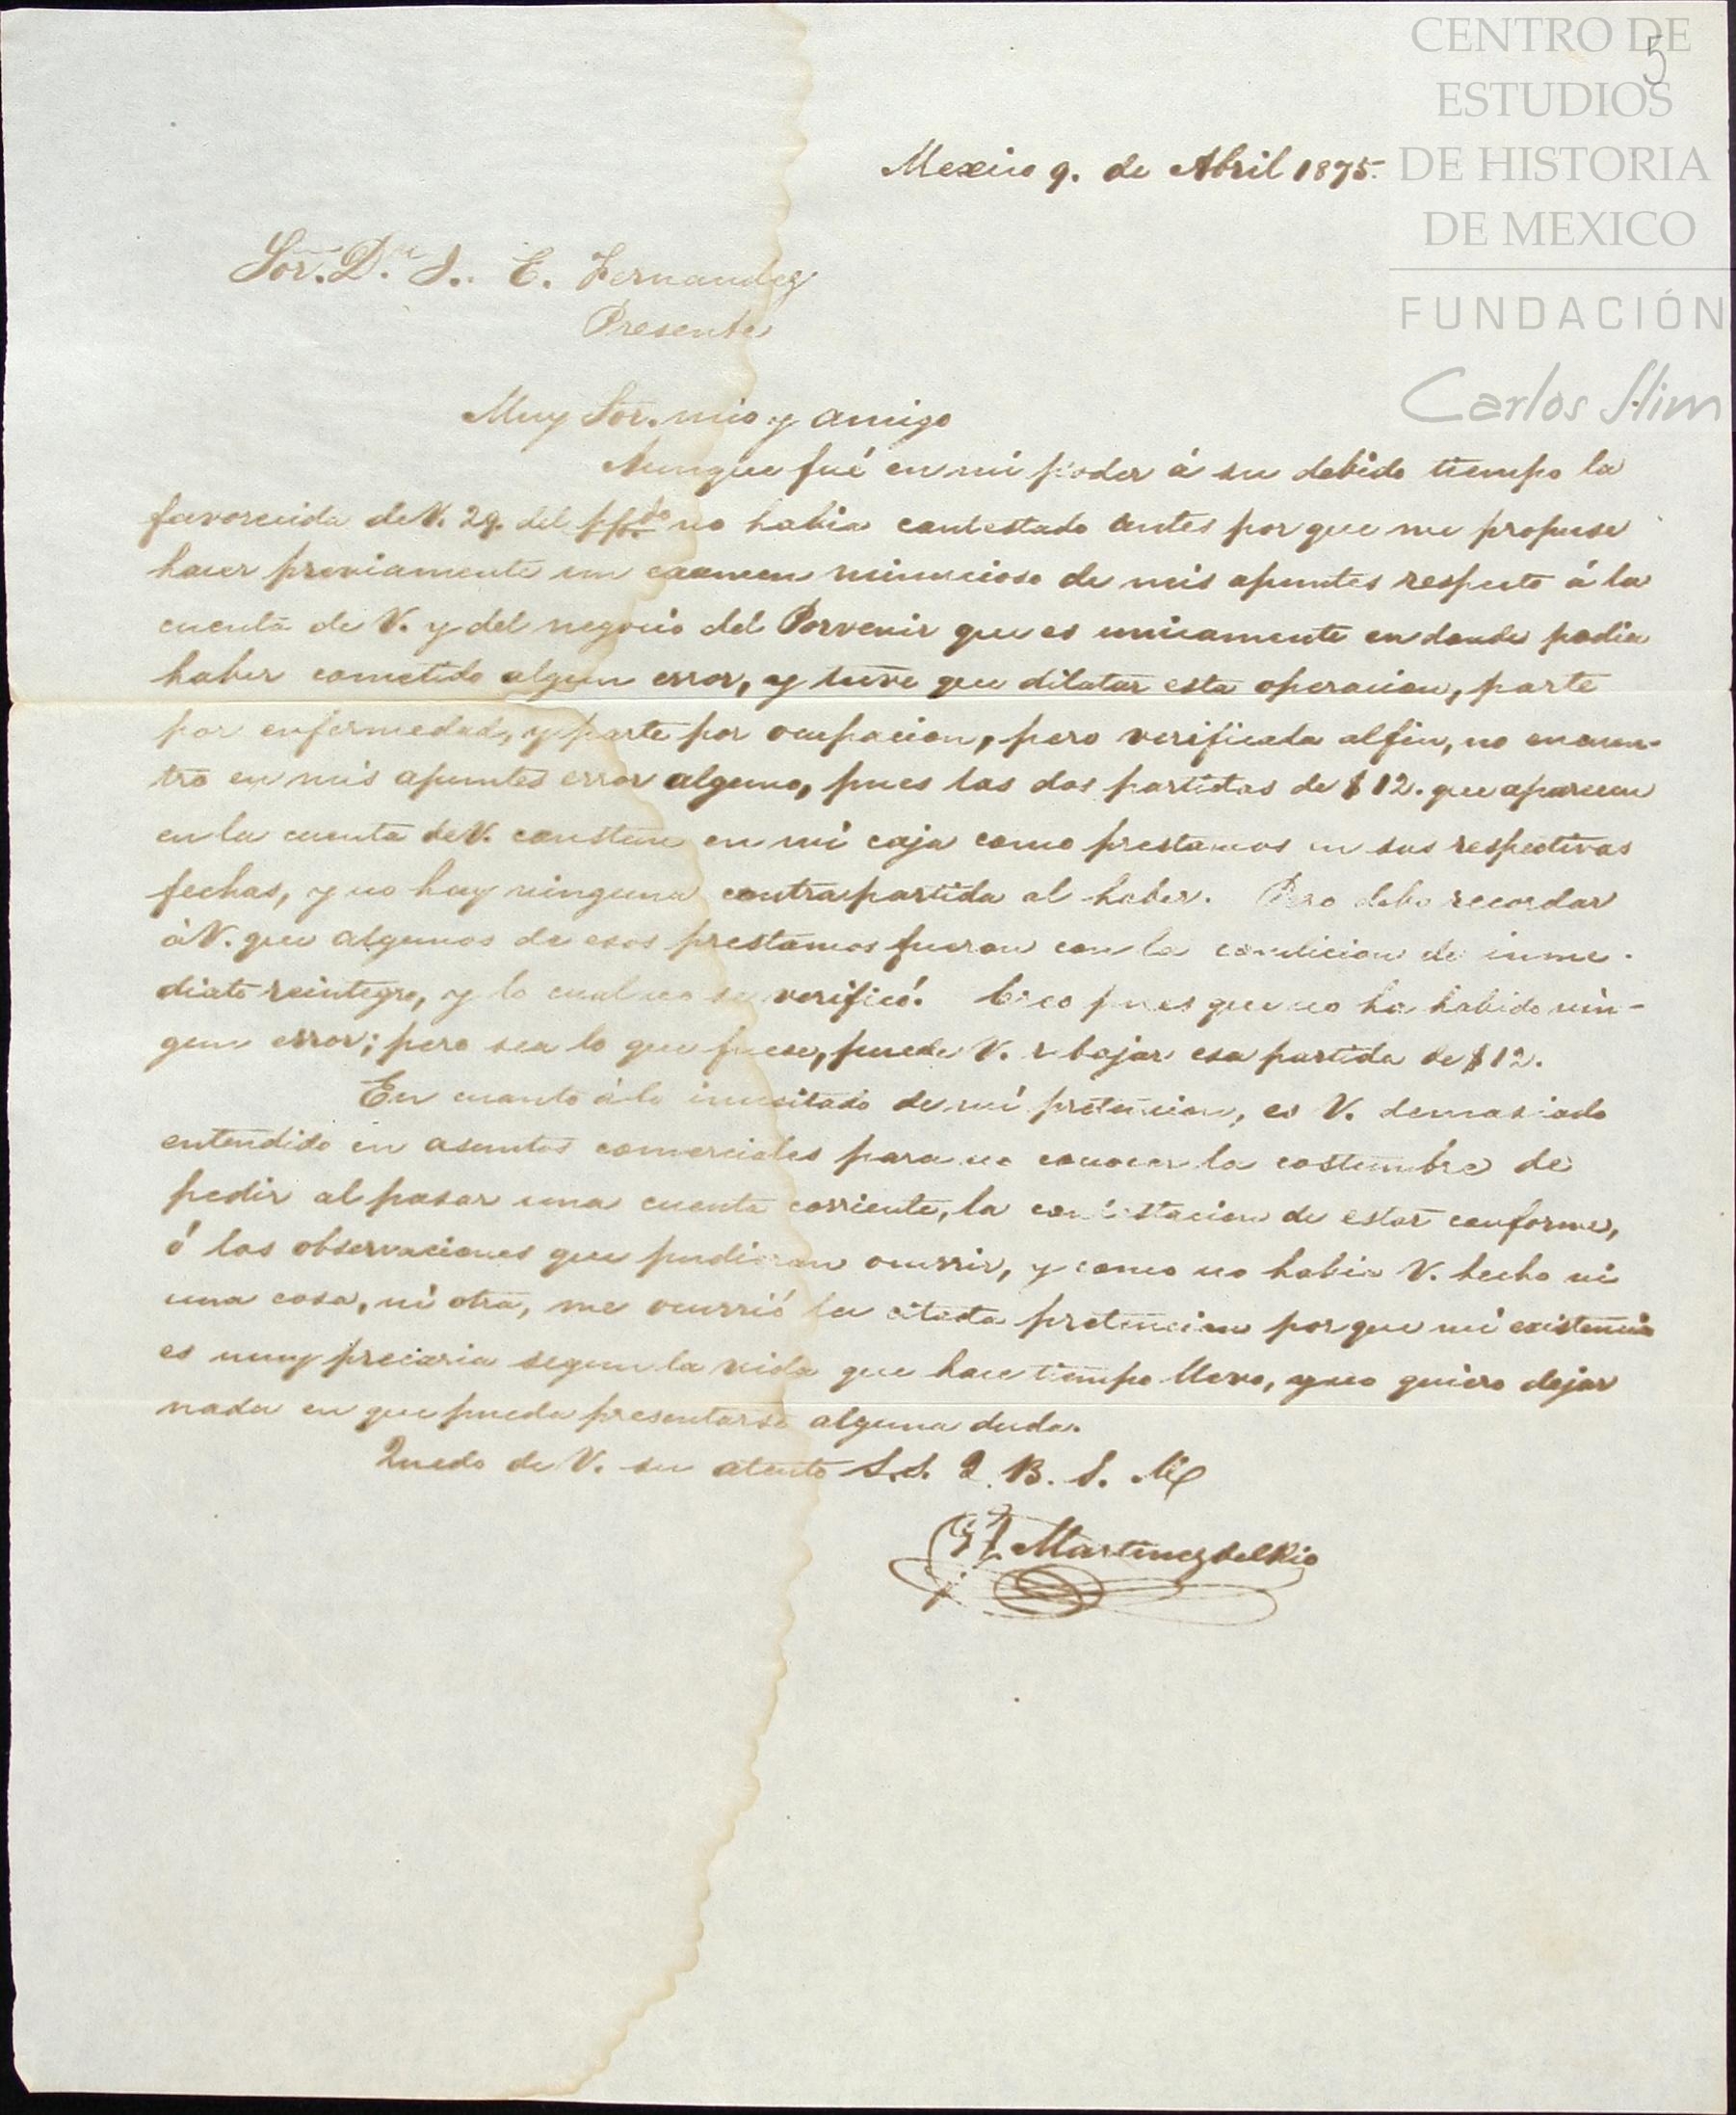 5
CENTRO DE
ESTUDIOS
DE HISTORIA
DE MEXICO
FUNDACIÓN
Carlos Slim
Mexico 9. de Abril 1875.
Sor. Dn J. E. Fernandez
Presente
Muy Sor. mio y amigo
Aunque fué en mi poder á su debido tiempo la
favorecida de V. 29. del ppdo no habia contestado antes por que me propuse
hacer previamente un examen minucioso de mis apuntes respecto á la
cuenta de V. y del negocio del Porvenir que es unicamente en donde podia
haber cometido algun error, y tuve que dilatar esta operacion, parte
por enfermedad, y parte por ocupacion, pero verificada al fin, no encuen-
tro en mis apuntes error alguno, pues las dos partidas de $12. que aparecen
en la cuenta de V. constan en mi caja como prestamos en sus respectivas
fechas, y no hay ninguna contrapartida al haber. Pero debo recordar
á V. que algunos de esos prestamos fueron con la condicion de inme-
diato reintegro, y lo cual no se verificó. Creo pues que no ha habido nin-
gun error; pero sea lo que fuese, puede V. rebajar esa partida de $12.
En cuanto á lo inusitado de mi pretencion, es V. demasiado
entendido en asuntos comerciales para no conocer la costumbre de
pedir al pasar una cuenta corriente, la contestacion de estar conforme,
ó las observaciones que pudieran ocurrir, y como no habia V. hecho ni
una cosa, ni otra, me ocurrió la citada pretencion por que mi existencia
es muy precaria segun la vida que hace tiempo llevo, y no quiero dejar
nada en que pueda presentarse alguna duda.
Quedo de V. su atento S.S. Q. B. S. M
Martinez del Rio